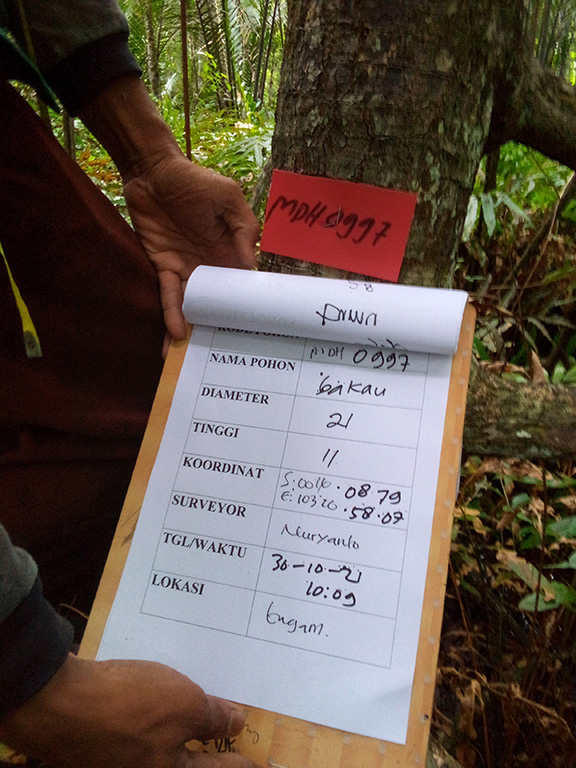 MDH 0997
KODE POHON MDH 0997
NAMA POHON bakau
DIAMETER 21
TINGGI 11
KOORDINAT S: 0016.08.79
E: 10320.58.07
SURVEYOR Nuryanto
TGL/WAKTU 30-10-21
10:09
LOKASI